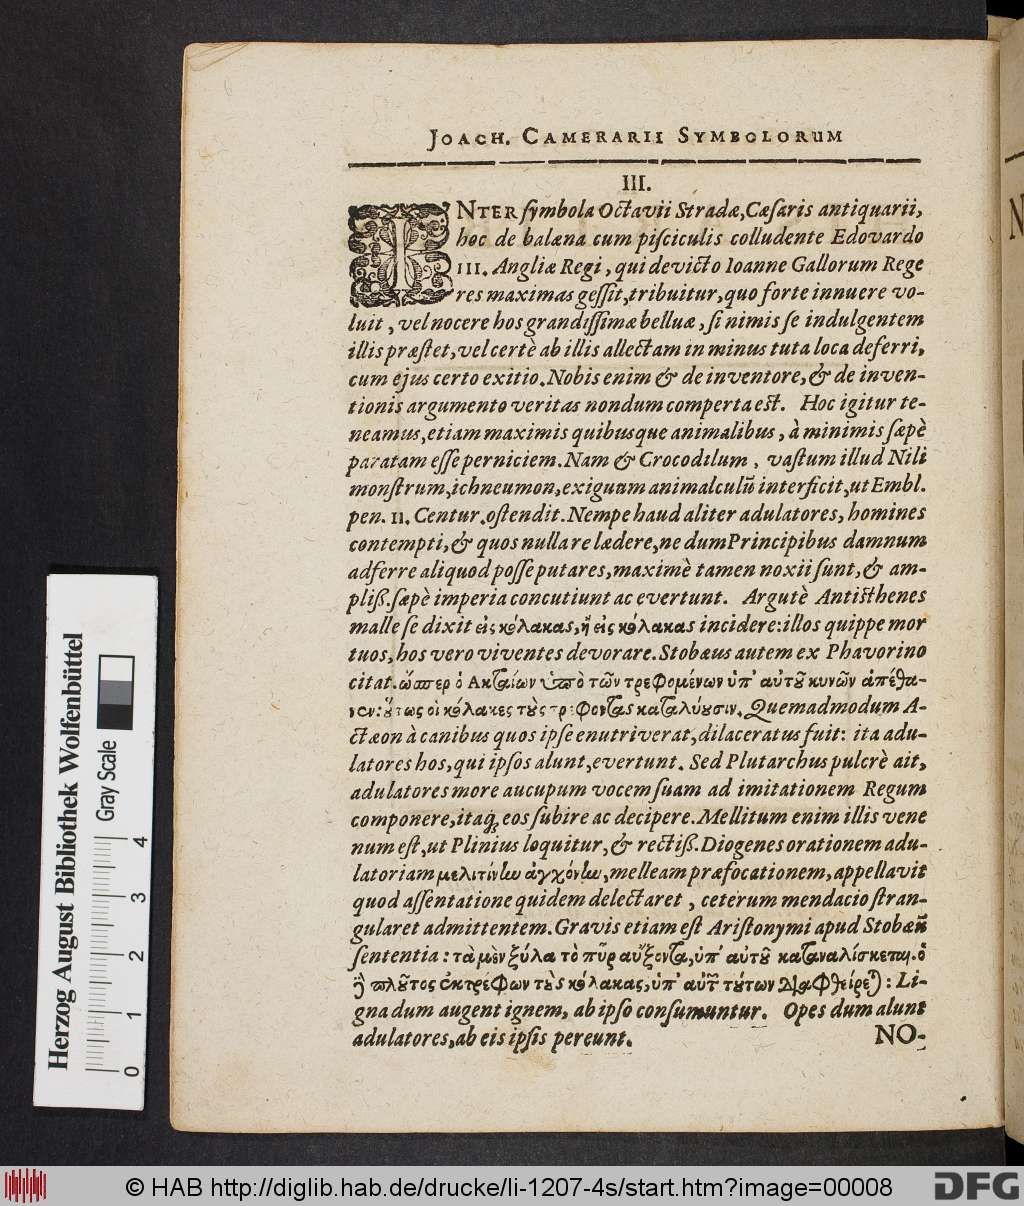 JOACH. CAMERARII SYMBOLORUM
III.
INTER ſymbola Octavii Stradæ, Cæſaris antiquarii,
hoc de balæna cum piſciculis colludente Edovardo
III. Angliæ Regi, qui devicto Ioanne Gallorum Rege
res maximas geſſit, tribuitur, quo forte innuere vo-
luit, vel nocere hos grandiſſimæ belluæ, ſi nimis ſe indulgentem
illis præſtet, vel certè ab illis allectam in minus tuta loca deferri,
cum ejus certo exitio. Nobis enim & de inventore, & de inven-
tionis argumento veritas nondum comperta eſt. Hoc igitur te-
neamus, etiam maximis quibusque animalibus, à minimis ſæpè
paratam eſſe perniciem. Nam & Crocodilum, vaſtum illud Nili
monſtrum, ichneumon, exiguum animalculū interficit, ut Embl.
pen. II. Centur. oſtendit. Nempe haud aliter adulatores, homines
contempti, & quos nulla re lædere, ne dum Principibus damnum
adferre aliquod poſſe putares, maximè tamen noxii ſunt, & am-
pliß. ſæpè imperia concutiunt ac evertunt. Argutè Antiſthenes
malle ſe dixit εἰς κόλακας, ἢ εἰς κόλακας incidere: illos quippe mor
tuos, hos vero viventes devorare. Stobæus autem ex Phavorino
citat. ὥσπερ ὁ Ακταίων ὑπὸ τῶν τρεφομένων ὑπ' αὐτοῦ κυνῶν ἀπέθα-
νεν: οὕτως οἱ κόλακες τοὺς τρέφοντας καταλύουσιν. Quemadmodum A-
ctæon à canibus quos ipſe enutriverat, dilaceratus fuit: ita adu-
latores hos, qui ipſos alunt, evertunt. Sed Plutarchus pulcrè ait,
adulatores more aucupum vocem ſuam ad imitationem Regum
componere, itaq; eos ſubire ac decipere. Mellitum enim illis vene
num eſt, ut Plinius loquitur, & rectiß. Diogenes orationem adu-
latoriam μελιτίνην ἀγχόνην, melleam præfocationem, appellavit
quod aſſentatione quidem delectaret, ceterum mendacio ſtran-
gularet admittentem. Gravis etiam eſt Ariſtonymi apud Stobæū
ſententia: τὰ μὲν ξύλα τὸ πῦρ αὔξοντα, ὑπ' αὐτοῦ καταναλίσκεται. ὁ
δὲ πλοῦτος ἐκτρέφων τοὺς κόλακας, ὑπ' αὐτῶν τούτων διαφθείρεται: Li-
gna dum augent ignem, ab ipſo conſumuntur. Opes dum alunt
adulatores, ab eis ipſis pereunt.
NO-
Herzog August Bibliothek Wolfenbüttel
Gray Scale
0 1 2 3 4
© HAB http://diglib.hab.de/drucke/li-1207-4s/start.htm?image=00008
DFG